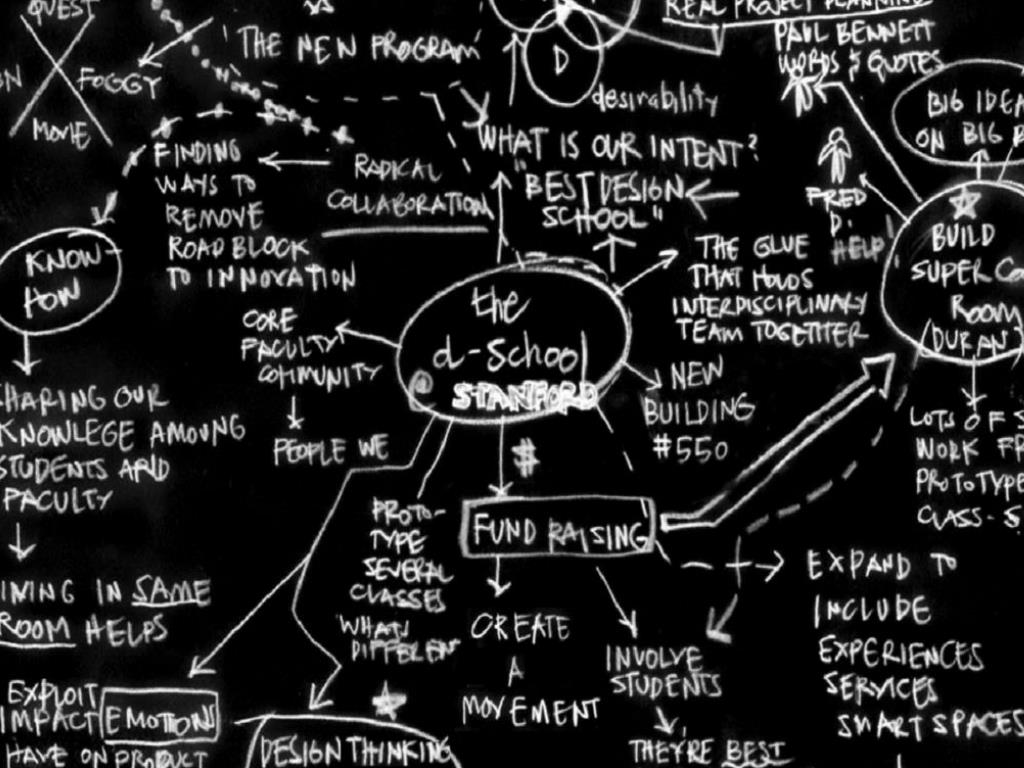 QUEST
FOGGY
MOVIE
'THE NEW PROGRAM'
D
desirability
REAL PROJECT PLANNING
PAUL BENNETT
WORDS & QUOTES
BIG IDEA
ON BIG
FINDING
WAYS TO
REMOVE
ROAD BLOCK
TO INNOVATION
RADICAL
COLLABORATION
WHAT IS OUR INTENT?
"BEST DESIGN
SCHOOL"
FRED
D.
HELP'
KNOW-
HOW
THE GLUE
THAT HOLDS
INTERDISCIPLINARY
TEAM TOGETHER
BUILD
SUPER
ROOM
(DURAN)
the
d-school
STANFORD
CORE
FACULTY
COMMUNITY
PEOPLE WE
NEW
BUILDING
#550
HARING OUR
KNOWLEGE AMOUNG
STUDENTS AND
FACULTY
$
FUND RAISING
PROTO-
TYPE
SEVERAL
CLASSES
WHATS
DIFFERENT
LOTS OF
WORK
PROTOTYPE
CLASS-
IN SAME
ROOM HELPS
EXPLOIT
IMPACT EMOTIONS
HAVE ON PRODUCT
DESIGN THINKING
CREATE
A
MOVEMENT
INVOLVE
STUDENTS
THEY'RE BEST
EXPAND TO
INCLUDE
EXPERIENCES
SERVICES
SMART SPACES